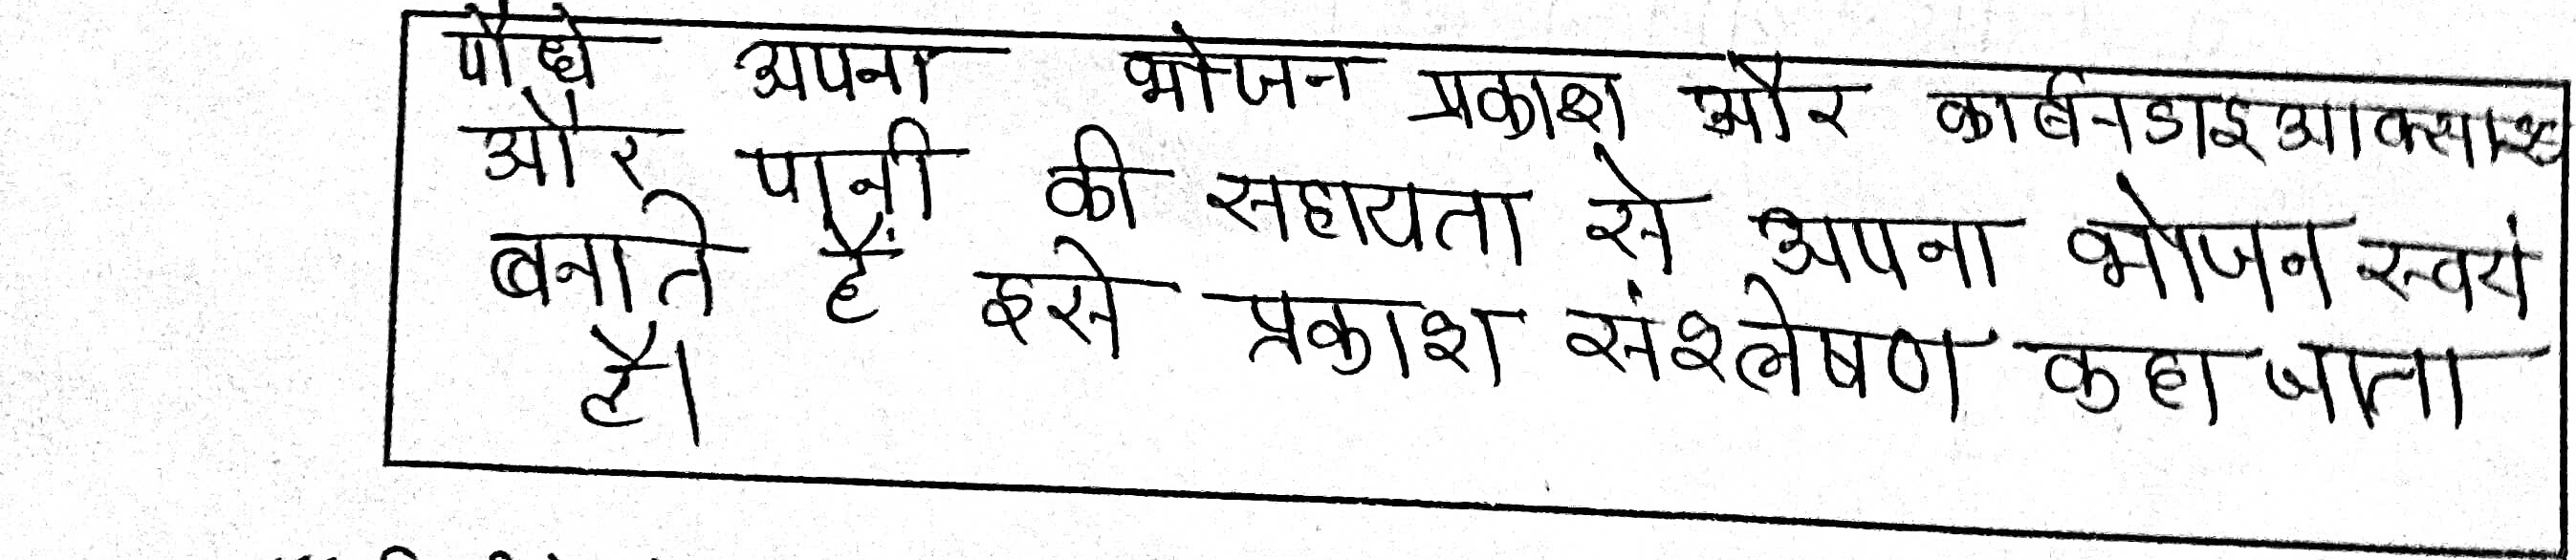 पौधे अपना भोजन प्रकाश और कार्बनडाइआक्साइड
और पानी की सहायता से अपना भोजन स्वयं
बनाते हैं इसे प्रकाश संश्लेषण कहा जाता
है।